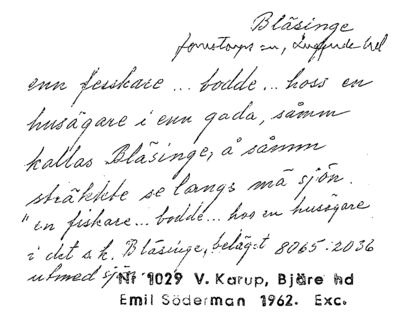 Blåsinge
Torrestorps sn, Luggude hd
enn fesskare ... bodde ... hoss en
husägare i enn gada, såmm
kallas Blåsinge, å såmm
sträkkte se langs mä sjön.
"en fiskare ... bodde ... hos en husägare
i det s.k. Blåsinge, beläget 8065.2036
utmed sjön
Nr 1029 V. Karup, Bjäre hd
Emil Söderman 1962. Exc.